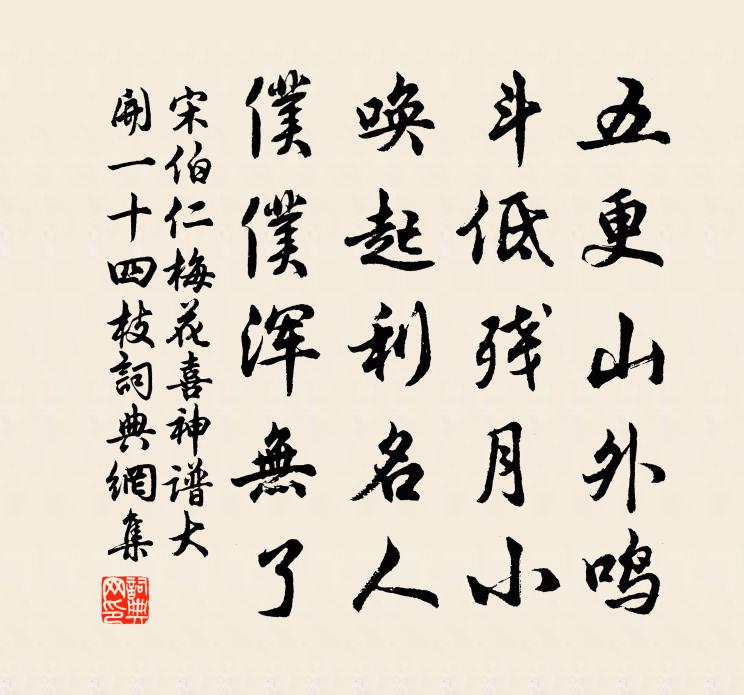 五更山外鸣
斗低残月小
唤起利名人
僕僕浑無了
宋伯仁梅花喜神谱大
開一十四枝詞典網集
詞典
网印